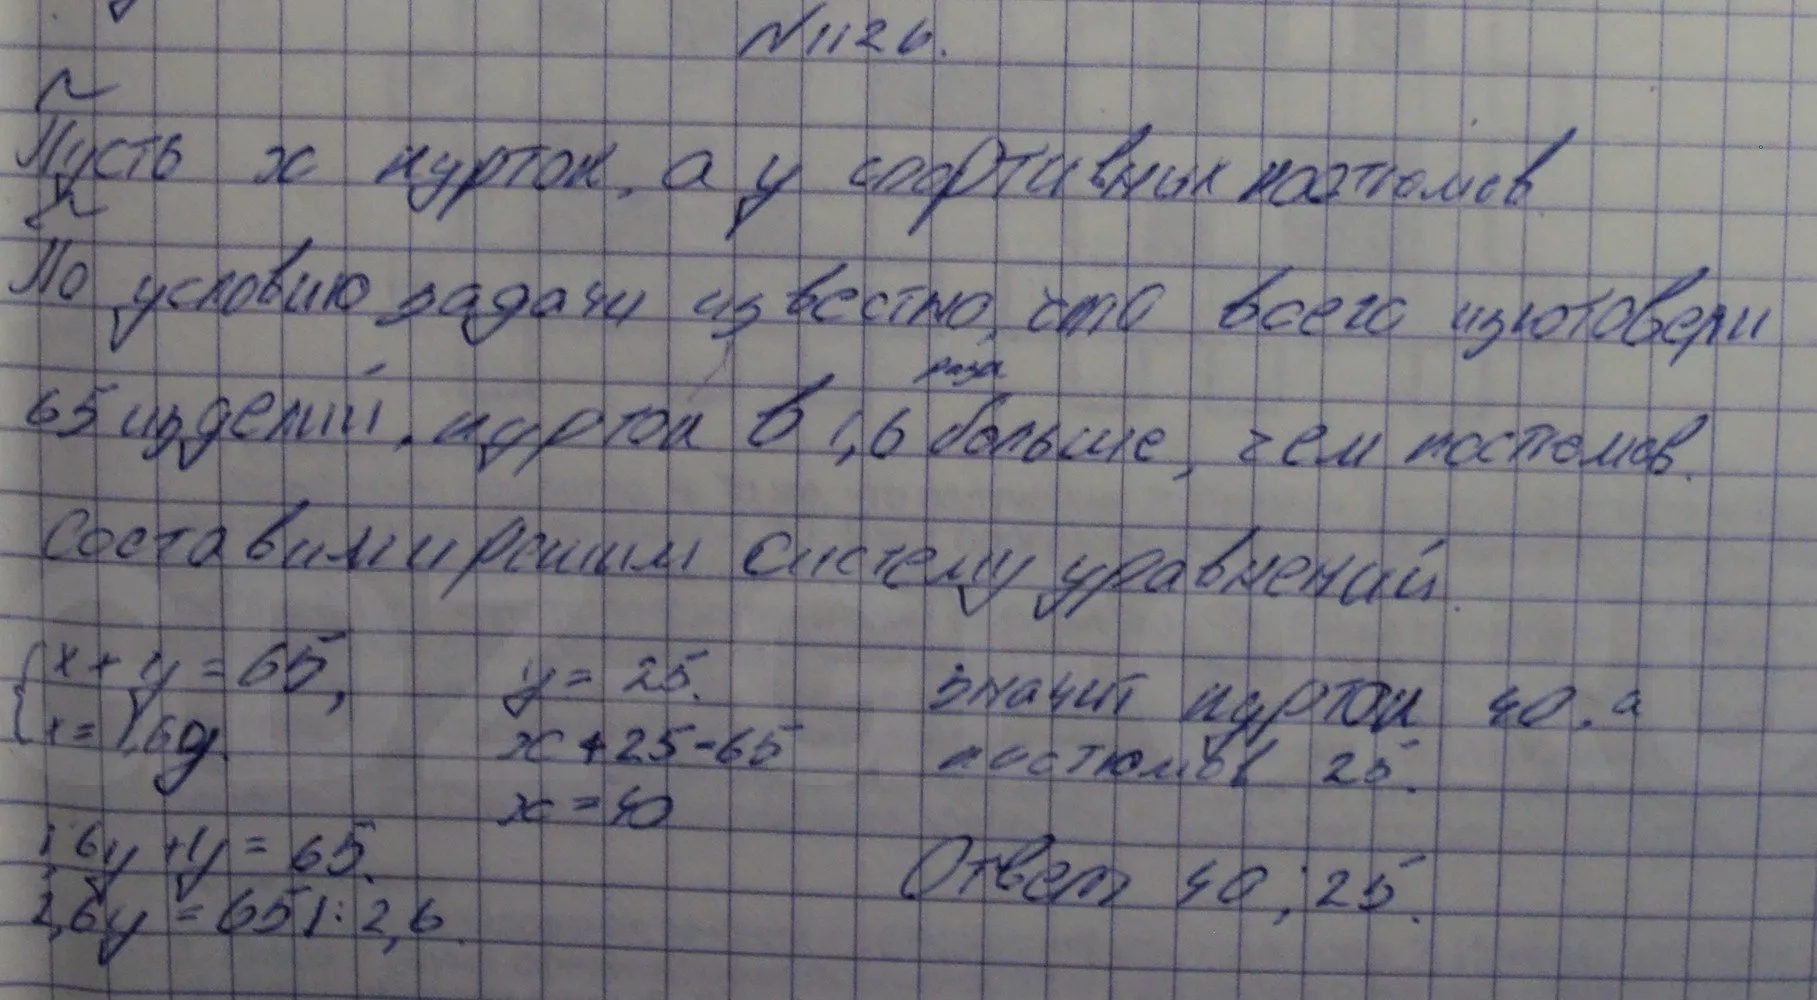 №1126.
Пусть x курток, а y спортивных костюмов
По условию задачи известно, что всего изготовели
раза
65 изделий, курток в 1,6 больше, чем костюмов.
Составим и решим систему уравнений.
x + y = 65, y = 25. значит курток 40, а
x = 1,6y. x + 25 = 65 костюмов 25.
x = 40
1,6y + y = 65. Ответ 40; 25.
2,6y = 65 | : 2,6.